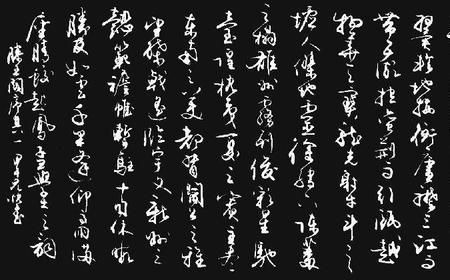 翼軫地接衡廬襟三江而
帶五湖控蠻荆而引甌越
物華天寶龍光射牛斗之
墟人傑地靈徐孺下陳蕃
之榻雄州霧列俊彩星馳
臺隍枕夷夏之交賓主盡
東南之美都督閻公之雅
望棨戟遙臨宇文新州之
懿範襜帷暫駐十旬休暇
勝友如雲千里逢迎高朋滿
座騰蛟起鳳孟學士之詞
滕王閣序其一